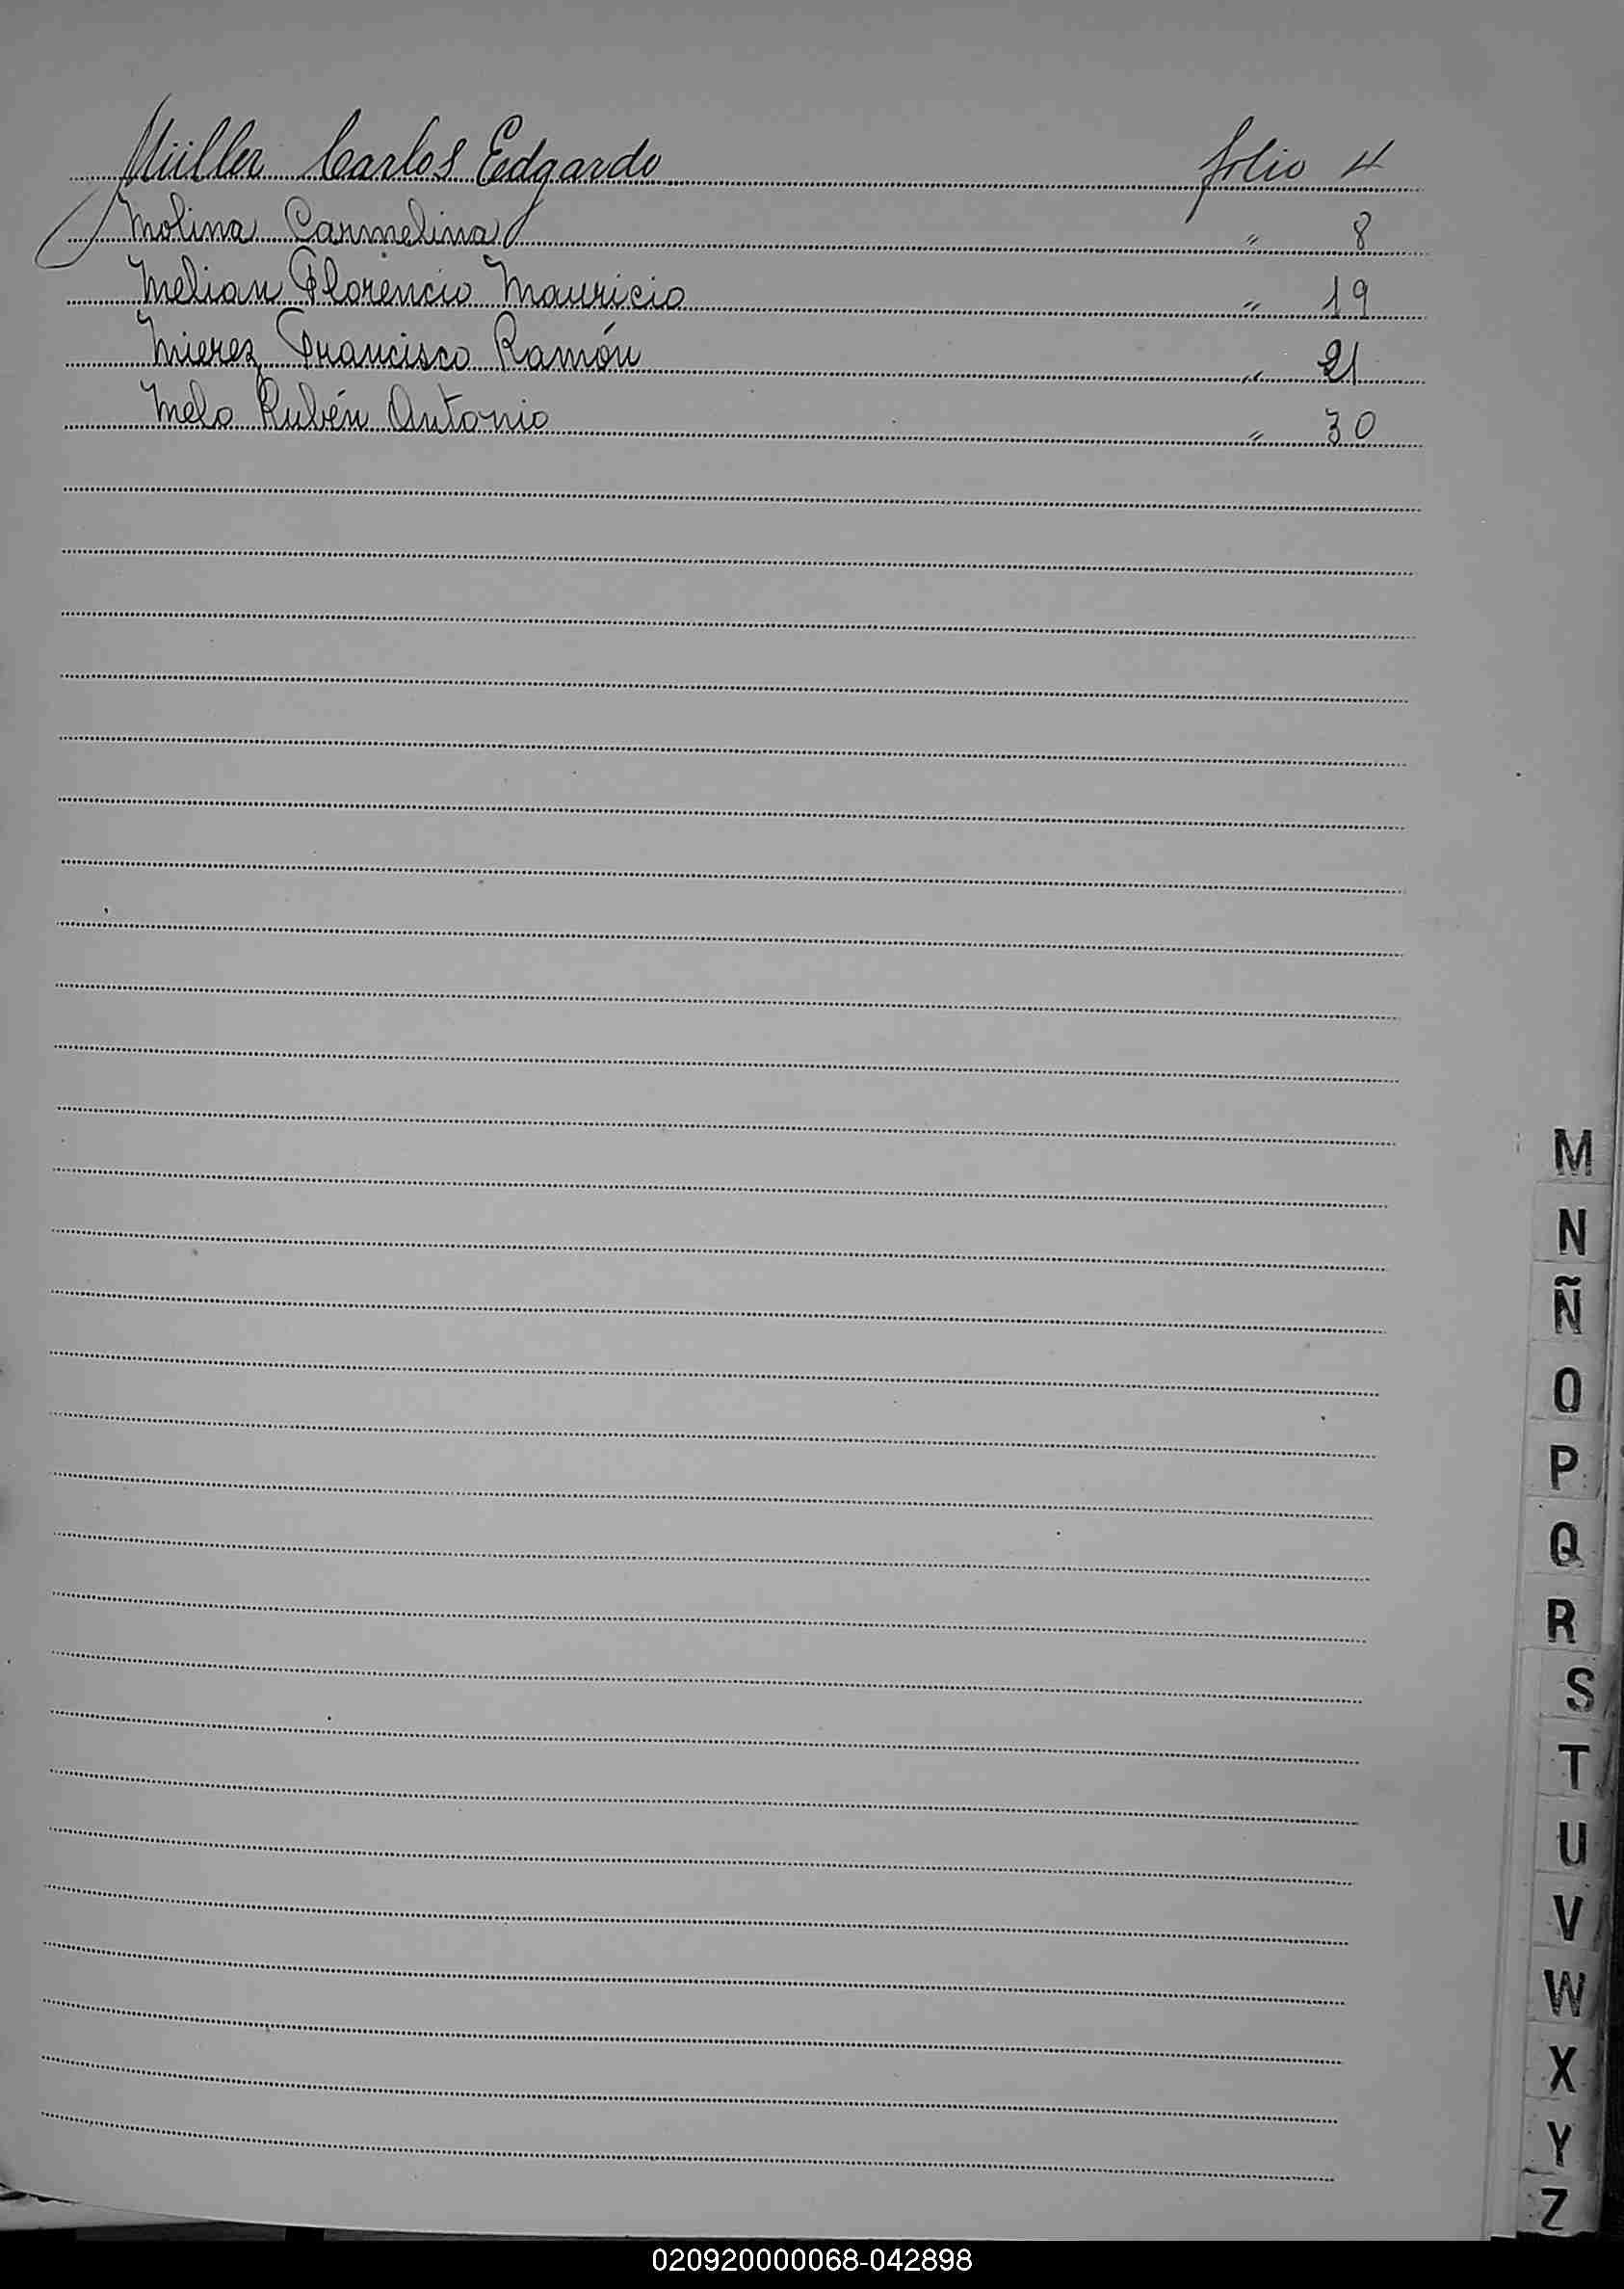 Müller Carlos Edgardo folio 4
Molina Carmelina " 8
Melian Florencio Mauricio " 19
Mierez Francisco Ramón " 21
Melo Rubén Antonio " 30
M
N
Ñ
O
P
Q
R
S
T
U
V
W
X
Y
Z
020920000068-042898